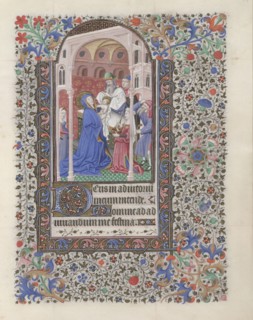 Deus in adiutoriu
meum intende.
Domine ad ad
iuvandum me festina